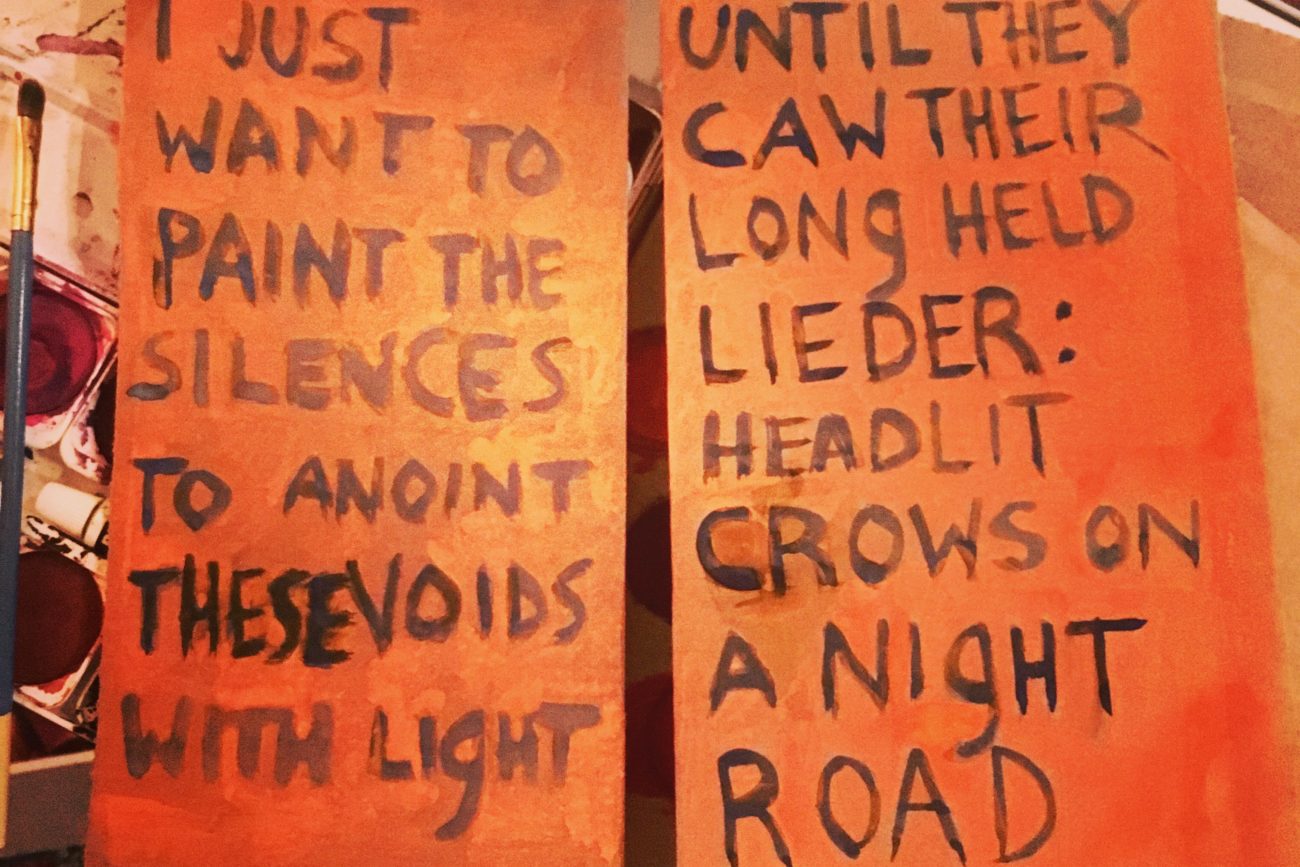 I JUST
WANT TO
PAINT THE
SILENCES
TO ANOINT
THESE VOIDS
WITH LIGHT
UNTIL THEY
CAW THEIR
LONg HELD
LIEDER:
HEADLIT
CROWS ON
A NIgHT
ROAD